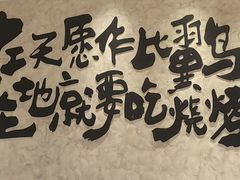 在天愿作比翼鸟
在地就要吃烧烤